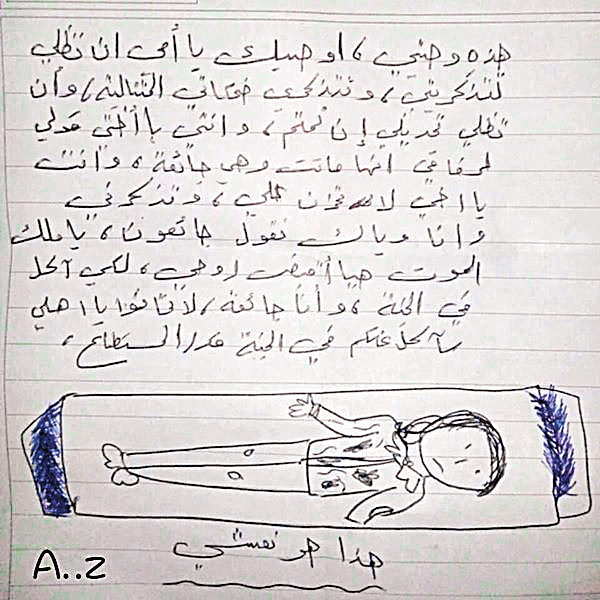 هذه وصيتي، اوصيك يا أمي ان تظلي
تتذكريني، وتتذكري ضحكاتي المتتالية، وأن
تظلي تحديلي إن لمتم، وانتي يا أختي قولي
لرفاقي انها ماتت وهي جائعة، وانت
يا اخي لا تحزن علي، وتذكرني
وانا وياك نقول جائعون، يا ملك
الموت هيا أقبض روحي، لكي آكل
في الجنة، وأنا جائعة، لا تخافوا يا اهلي
سآكل عنكم في الجنة قدر المستطاع،
هذا هو نعشي
A..z